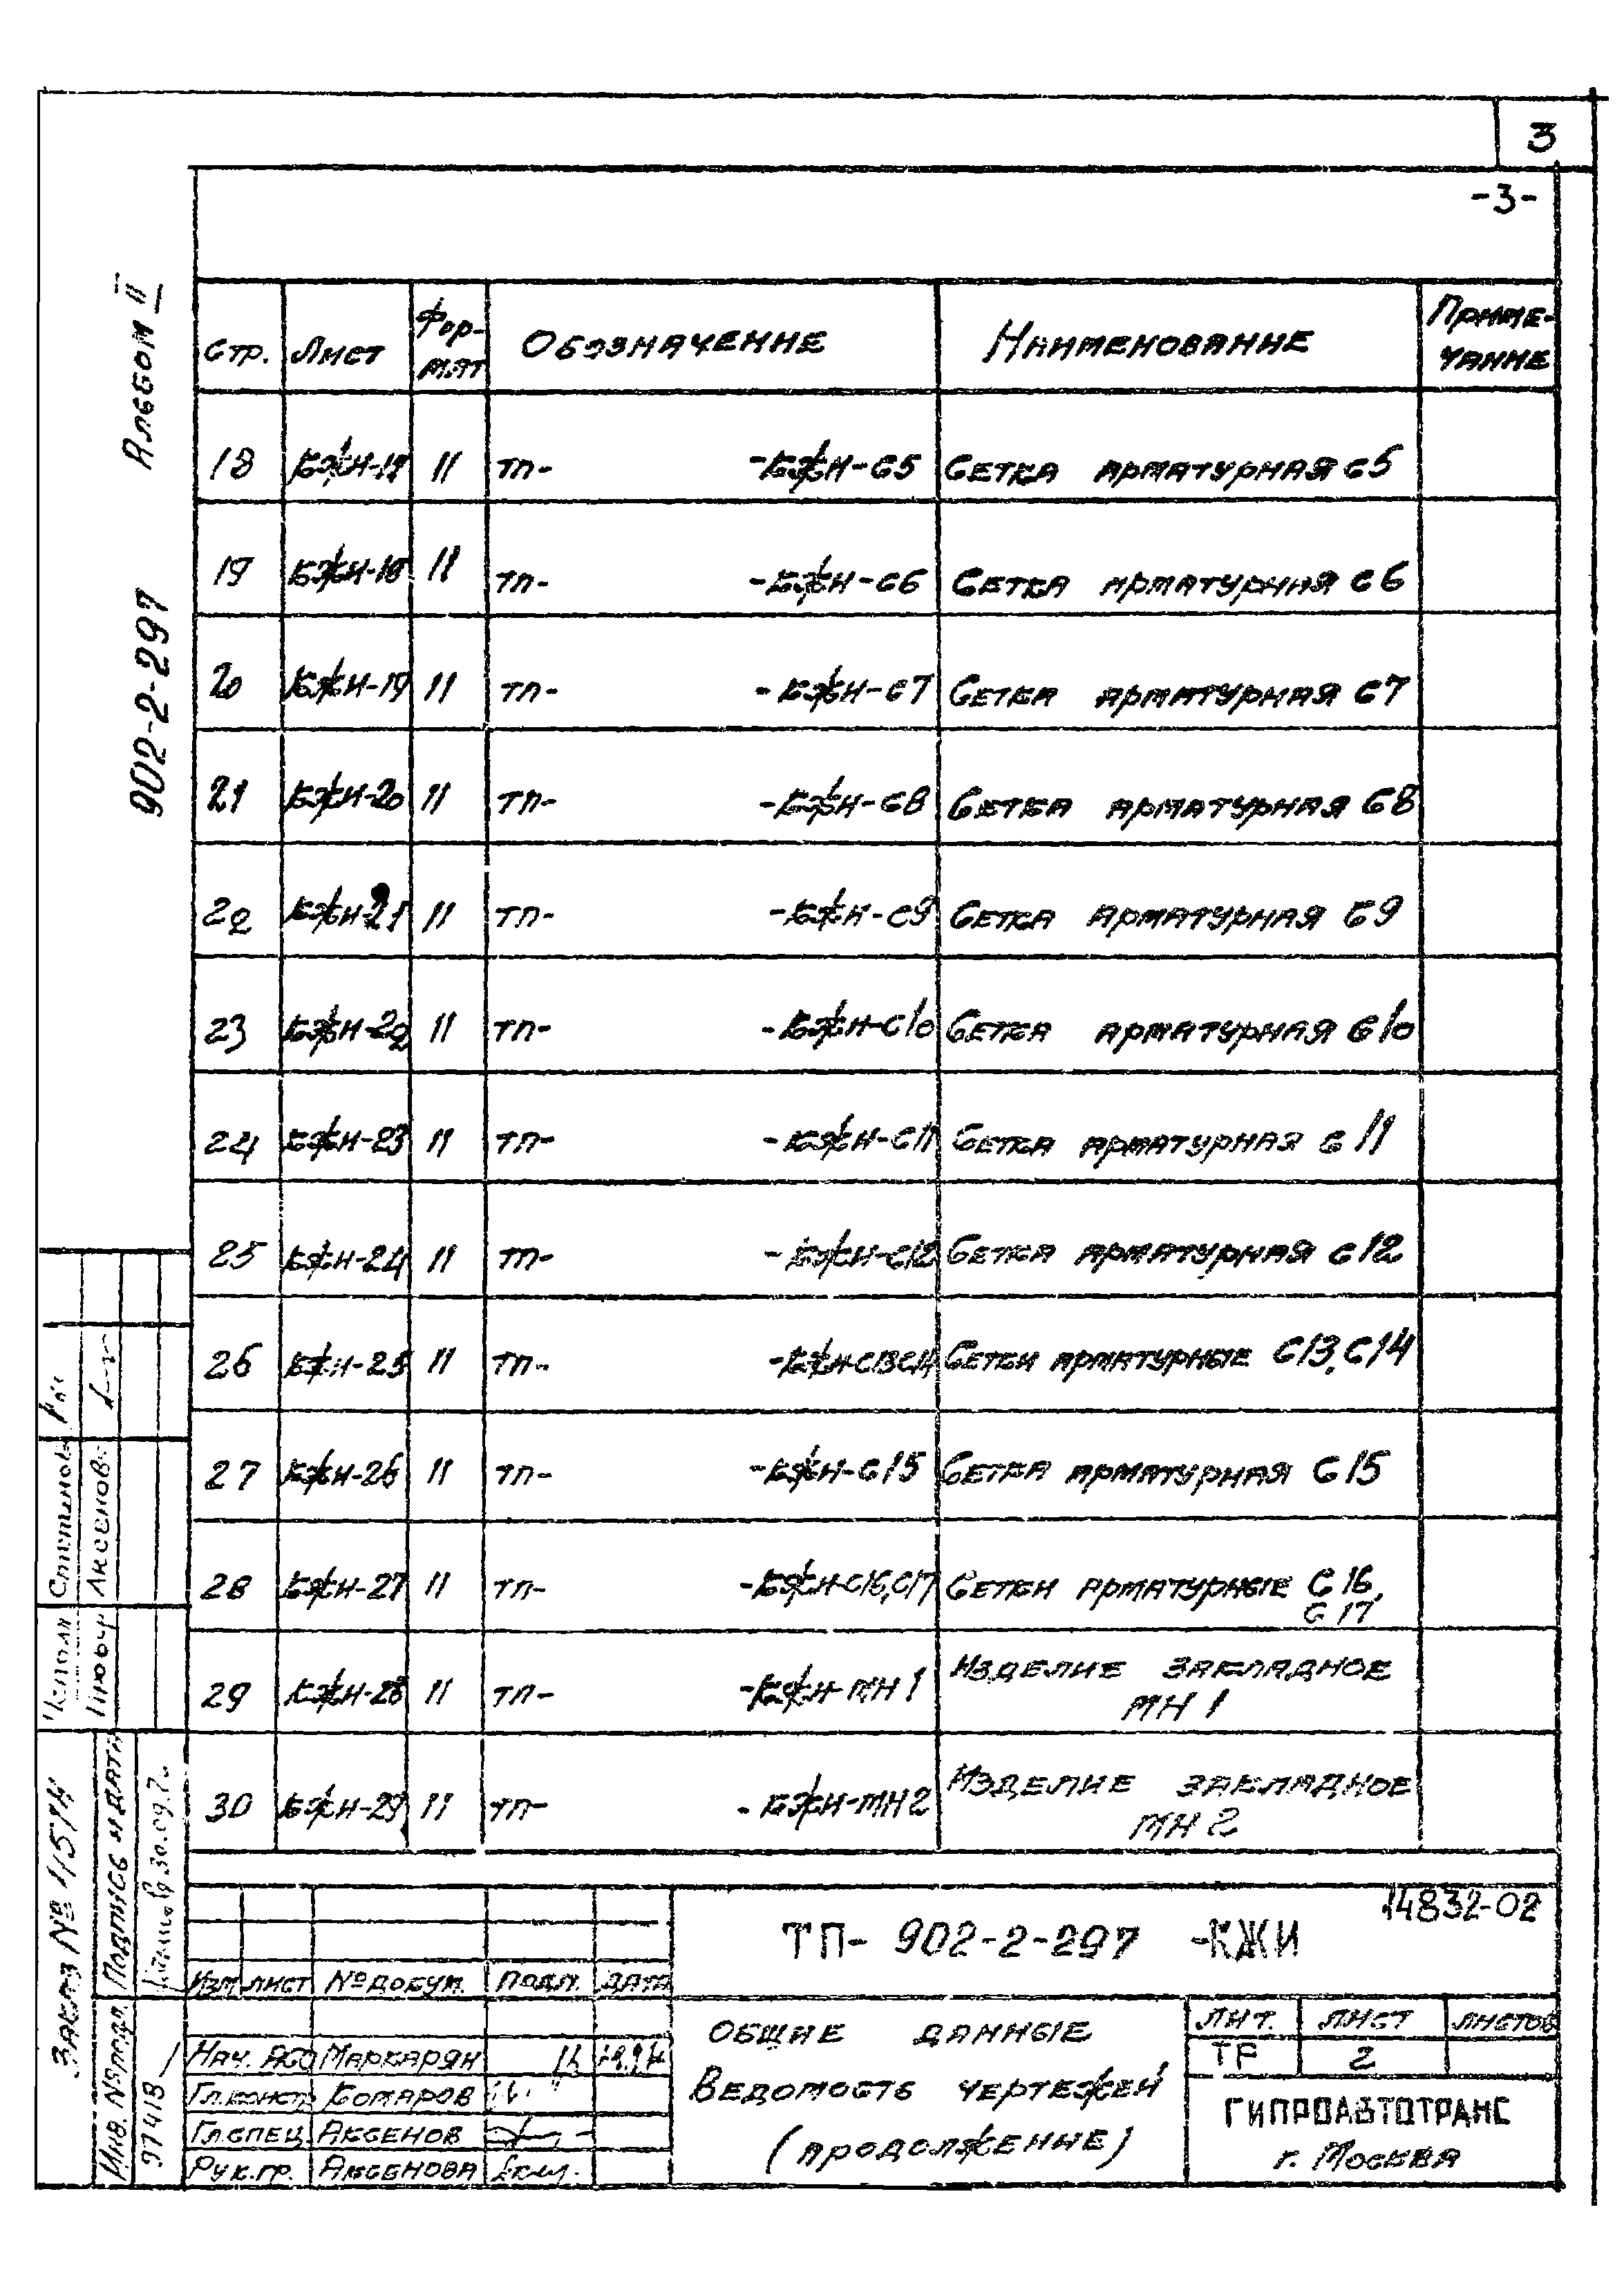 3
-3-
Альбом II
902-2-297
Стр. Лист Фор-мат Обозначение Наименование Приме-чание
18 КЖИ-17 11 ТП- -КЖИ-С5 Сетка арматурная С5
19 КЖИ-18 11 ТП- -КЖИ-С6 Сетка арматурная С6
20 КЖИ-19 11 ТП- -КЖИ-С7 Сетка арматурная С7
21 КЖИ-20 11 ТП- -КЖИ-С8 Сетка арматурная С8
22 КЖИ-21 11 ТП- -КЖИ-С9 Сетка арматурная С9
23 КЖИ-22 11 ТП- -КЖИ-С10 Сетка арматурная С10
24 КЖИ-23 11 ТП- -КЖИ-С11 Сетка арматурная С11
25 КЖИ-24 11 ТП- -КЖИ-С12 Сетка арматурная С12
26 КЖИ-25 11 ТП- -КЖИ-С13С14 Сетки арматурные С13, С14
27 КЖИ-26 11 ТП- -КЖИ-С15 Сетка арматурная С15
28 КЖИ-27 11 ТП- -КЖИ-С16,С17 Сетки арматурные С16,
С17
29 КЖИ-28 11 ТП- -КЖИ-МН1 Изделие закладное
МН 1
30 КЖИ-29 11 ТП- -КЖИ-МН2 Изделие закладное
МН 2
14832-02
ТП- 902-2-297 -КЖИ
Изм Лист № докум. Подп. Дата
Нач. АСО Маркарян
Гл.констр Комаров
Гл.спец. Аксенов
Рук.гр. Аксенова
Общие данные
Ведомость чертежей
(продолжение)
Лит. Лист Листов
ТР 2
ГИПРОАВТОТРАНС
г. Москва
Аксенов
Заказ №
Подпись и дата
Инв. № подл.